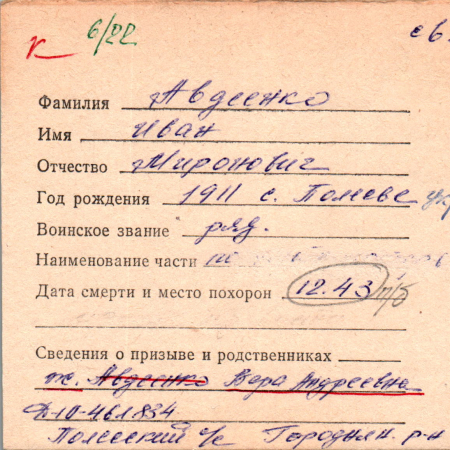 К 6/22 с6
Фамилия Авдеенко
Имя Иван
Отчество Миронович
Год рождения 1911 с. Полесье укр
Воинское звание ряд.
Наименование части
Дата смерти и место похорон 12.43 п/б
Сведения о призыве и родственниках
ж. Авдеенко Вера Андреевна
Д10-461834
Полесский с/с Городнян. р-н